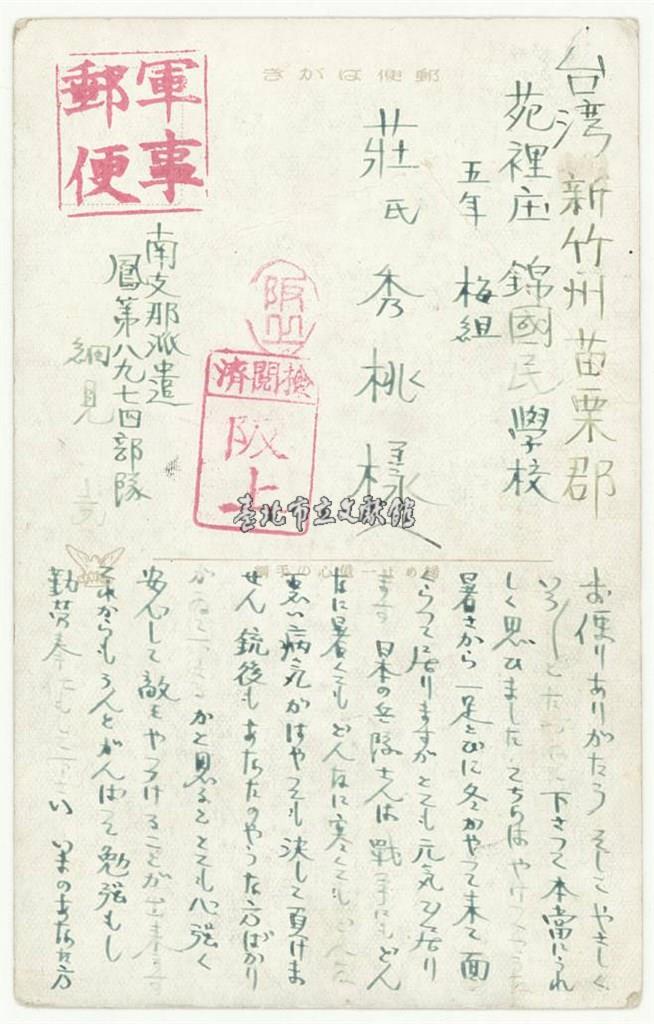 郵便はがき
軍事
郵便
台湾新竹州苗栗郡
苑裡庄錦國民學校
五年 梅組
莊氏秀桃様
阪上
検閲済
阪上
南支那派遣
鳳第八九七四部隊
細見
臺北市立文獻館
銃手の心億一止め総
お便りありがたう そしてやさしく
いろ〱と 下さつて本當にうれ
しく思ひました こちらはやけつくやうな
暑さから一足とびに冬がやつて来て面
くらつて居りますがとても元気で居り
ます 日本の兵隊さんは戦争にもどん
なに暑くてもどんなに寒くてもどんな
悪い病気がはやつても決して負けま
せん 銃後もあなたのやうな方ばかり
かと思ふととても心強く
安心して敵をやつつけることが出来ます
それからもうんとがんばつて勉強もし
勤労奉仕も 下さい いまのあなた方